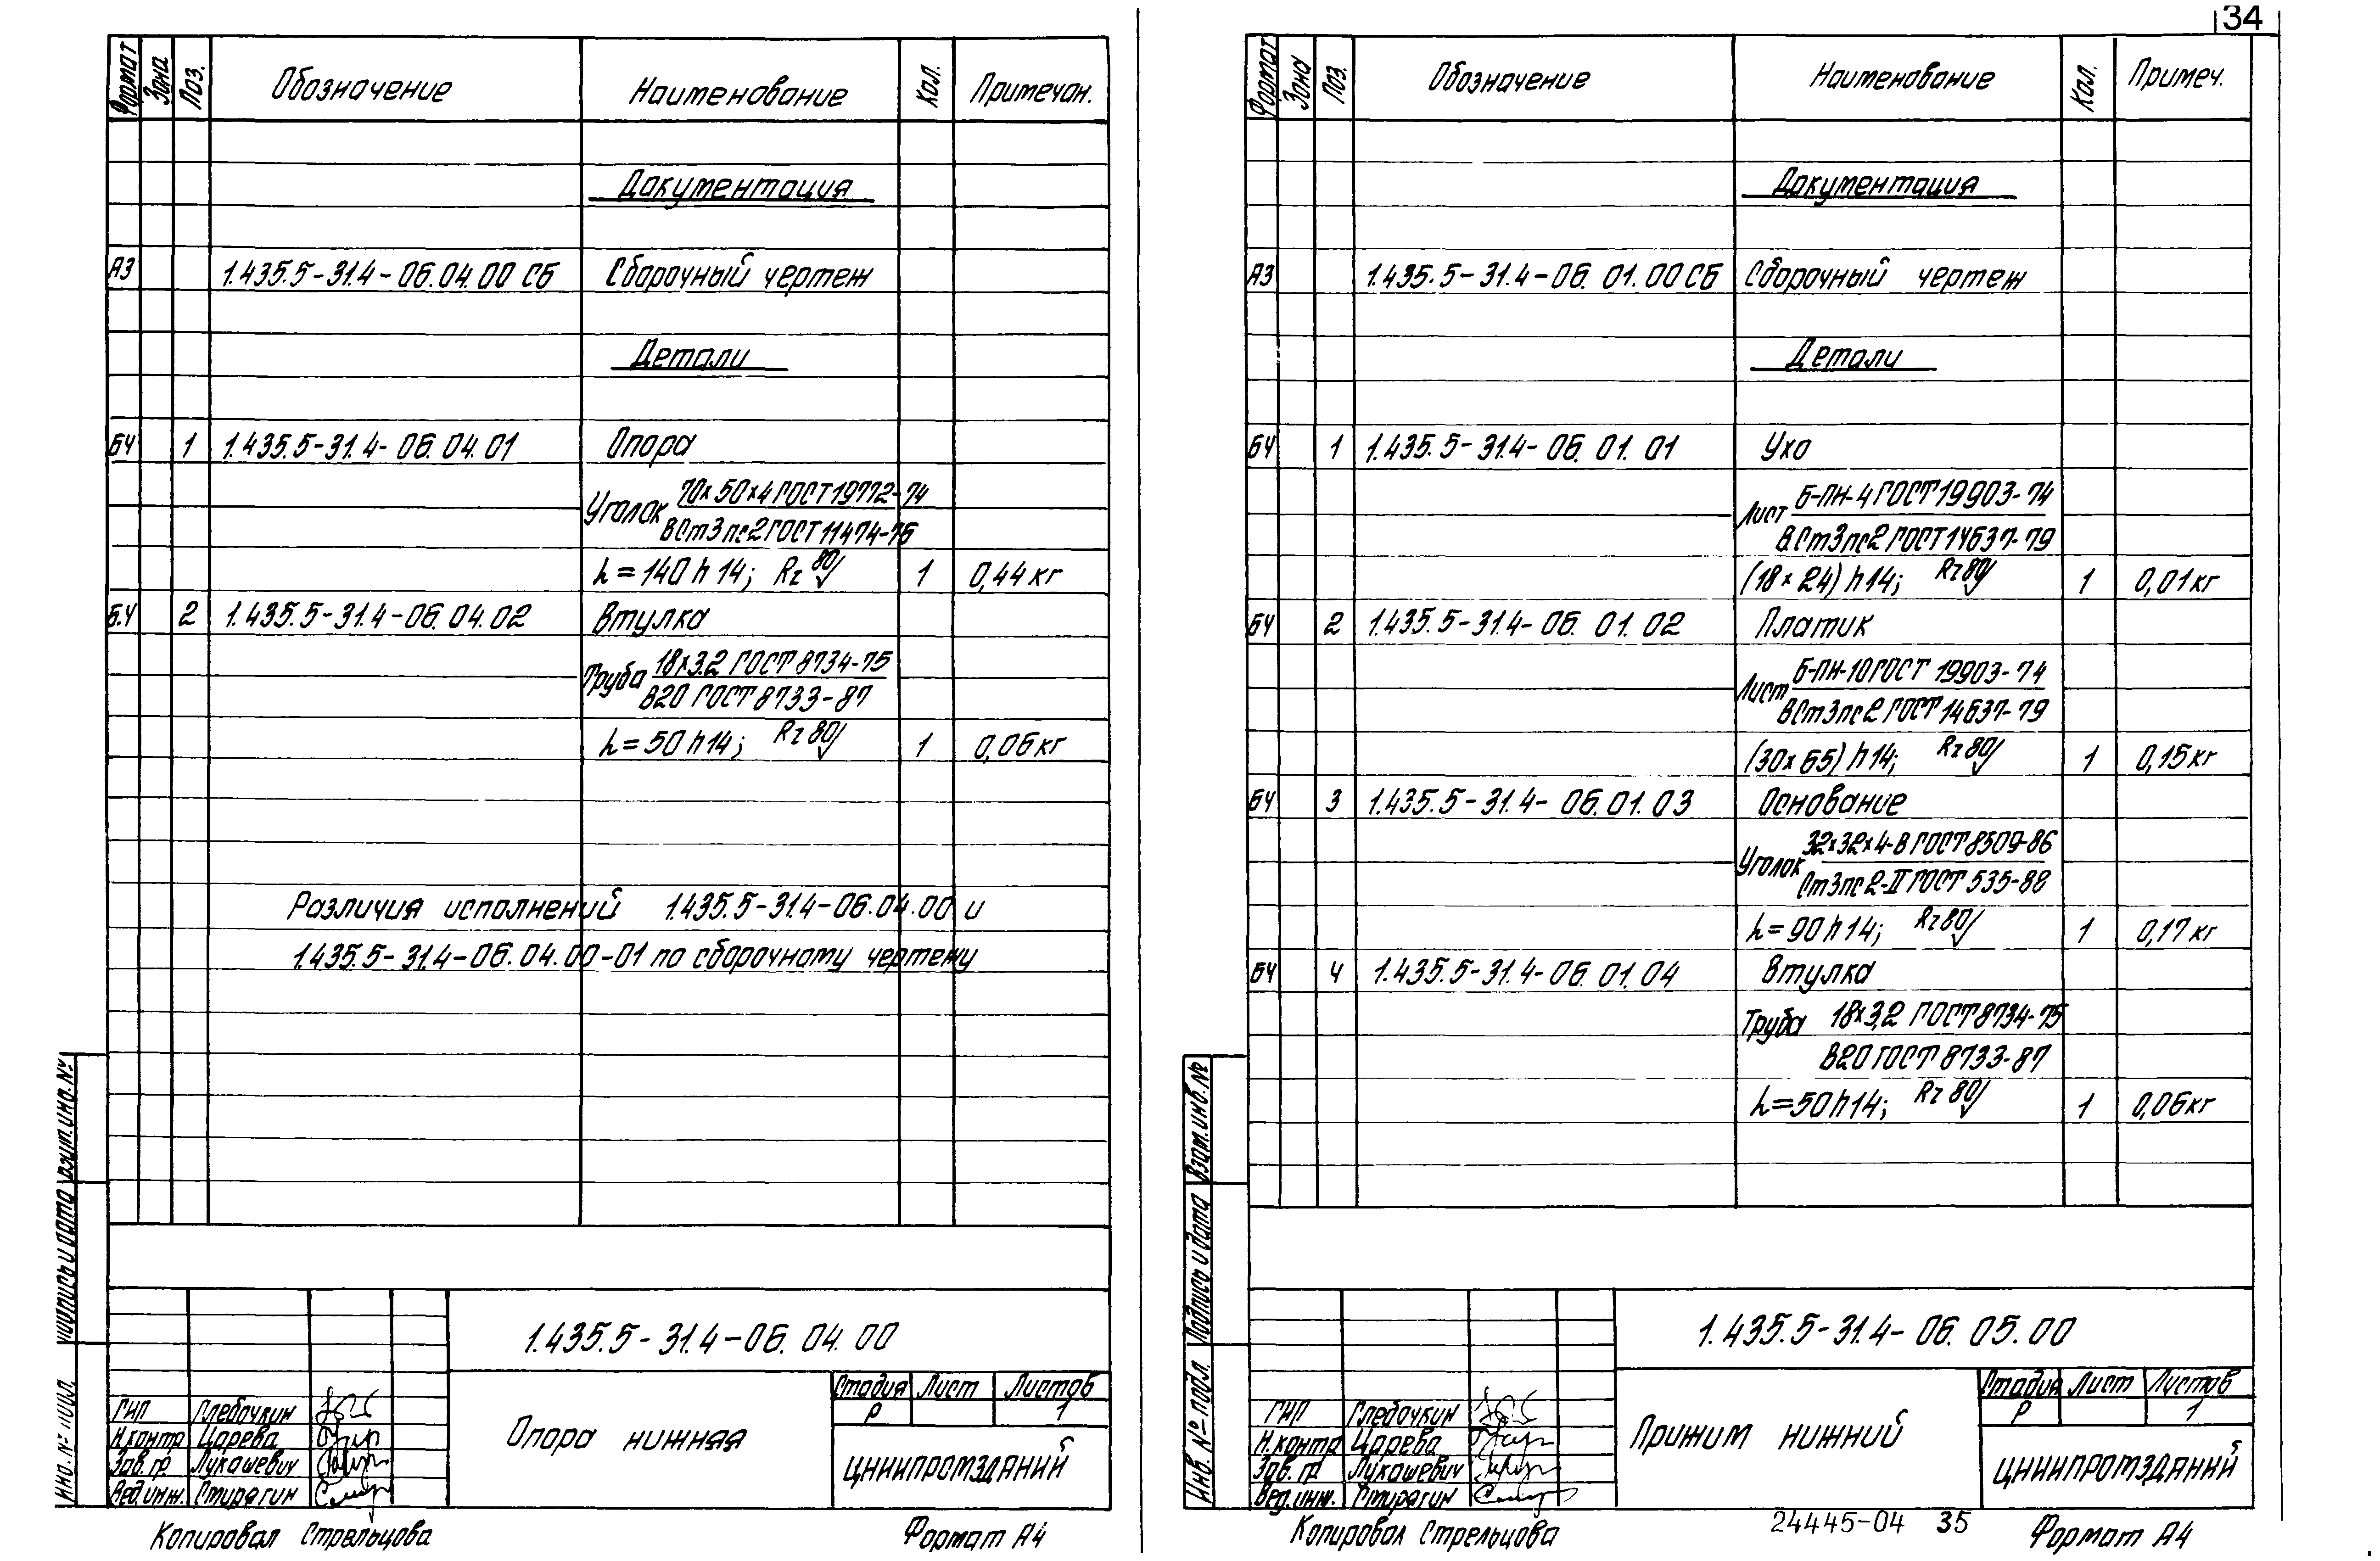 34
Формат Зона Поз. Обозначение Наименование Кол. Примечан.
Документация
А3 1.435.5-31.4-06.04.00 СБ Сборочный чертеж
Детали
БЧ 1 1.435.5-31.4-06.04.01 Опора
Уголок 70×50×4 ГОСТ 19772-74
ВСт3пс2 ГОСТ 11474-76
L=140 h14; Rz 80 1 0,44 кг
Б.Ч 2 1.435.5-31.4-06.04.02 Втулка
Труба 18×3.2 ГОСТ 8734-75
В20 ГОСТ 8733-87
L=50 h14; Rz 80 1 0,06 кг
Различия исполнений 1.435.5-31.4-06.04.00 и
1.435.5-31.4-06.04.00-01 по сборочному чертежу
Взам.инв.№
Подпись и дата
Инв. № подл.
1.435.5-31.4-06.04.00
Стадия Лист Листов
Р 1
ГИП Глебочкин
Н.контр Царева
Зав.гр Лукашевич
Вед.инж. Стирягин
Опора нижняя
ЦНИИПРОМЗДАНИЙ
Копировал Стрельцова
Формат А4
Формат Зона Поз. Обозначение Наименование Кол. Примеч.
Документация
А3 1.435.5-31.4-06.01.00 СБ Сборочный чертеж
Детали
БЧ 1 1.435.5-31.4-06.01.01 Ухо
Лист Б-ПН-4 ГОСТ 19903-74
ВСт3пс2 ГОСТ 14637-79
(18×24) h14; Rz 80 1 0,01 кг
БЧ 2 1.435.5-31.4-06.01.02 Платик
Лист Б-ПН-10 ГОСТ 19903-74
ВСт3пс2 ГОСТ 14637-79
(30×65) h14; Rz 80 1 0,15 кг
БЧ 3 1.435.5-31.4-06.01.03 Основание
Уголок 32×32×4-В ГОСТ 8509-86
Ст3пс2-II ГОСТ 535-88
L=90 h14; Rz 80 1 0,17 кг
БЧ 4 1.435.5-31.4-06.01.04 Втулка
Труба 18×3,2 ГОСТ 8734-75
В20 ГОСТ 8733-87
L=50 h14; Rz 80 1 0,06 кг
Взам.инв.№
Подпись и дата
Инв. № подл.
1.435.5-31.4-06.05.00
Стадия Лист Листов
Р 1
ГИП Глебочкин
Н.контр Царева
Зав.гр Лукашевич
Вед.инж. Стирягин
Прижим нижний
ЦНИИПРОМЗДАНИЙ
Копировал Стрельцова
24445-04 35
Формат А4